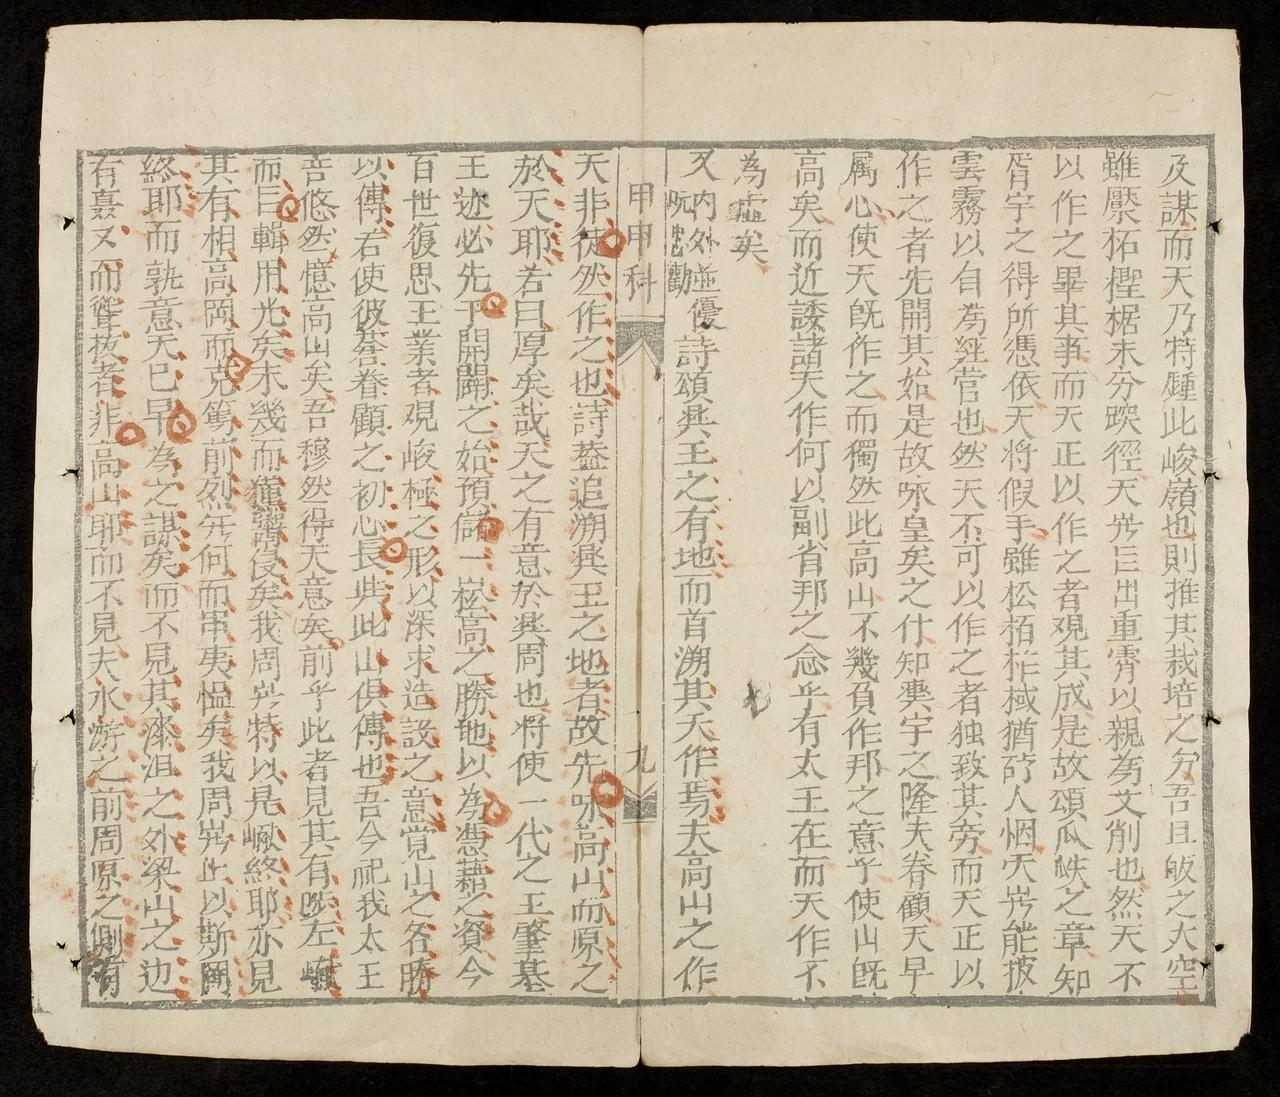 及謀而天乃特踵此峻嶺也則推其栽培之分吾且皈之大空
雖檿柘檉椐未分蹊徑天岂巨出重霄以親為艾削也然天不
以作之畢其事而天正以作之者观其成是故頌瓜瓞之章知
胥宇之得所憑依天將假手雖松栢柞棫猶碍人烟天岂能披
雲霧以自為經营也然天不可以作之者独致其旁而天正以
作之者先開其始是故咏皇矣之什知與宇之隆夫眷顧天早
属心使天既作之而獨然此高山不幾負作邦之意乎使山既
高矣而近諉諸天作何以副省邦之念乎有太王在而天作不
為虛矣
又 内外並優 詩頌興王之有地而首溯其天作焉夫高山之作
甲申科
九
天非徒然作之也詩葢追溯興王之地者故先咏高山而原之
於天耶若曰厚矣哉天之有意於興周也将使一代之王肇基
王迹必先予開闢之始預儲一崧高之勝地以為憑藉之資今
百世復思王業者观峻極之形以深求造設之意覚山之各勝
以傳若使彼蒼眷顧之初心長與此山俱傳也吾今祀我太王
啓悠然憶高山矣吾穆然得天意矣前乎此者見其有陟左巘
而曰輯用光矣未幾而獯鬻侵矣我周岂特以是巘終耶亦見
其有相高岡而克篤前烈岂何而串夷愠矣我周岂此以斯岡
終耶而孰意天已早為之謀矣而不見其漆沮之外梁山之边
有嘉又而聳拔者非高山耶而不見夫水滸之前周原之側有